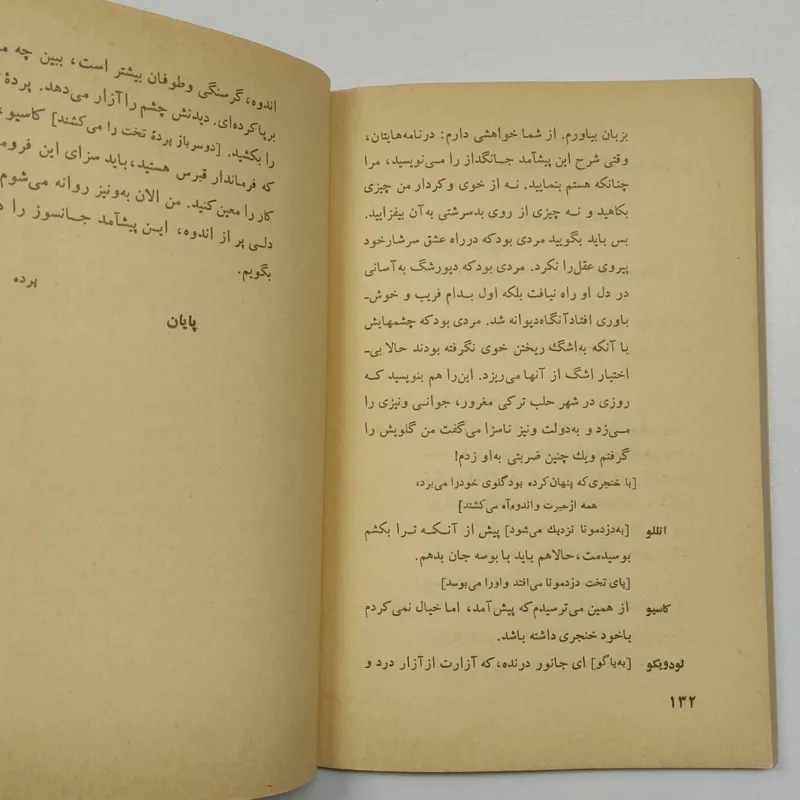 بزبان بیاورم. از شما خواهشی دارم: درنامه‌هایتان،
وقتی شرح این پیشآمد جانگداز را می‌نویسید، مرا
چنانکه هستم بنمایید. نه از خوی وکردار من چیزی
بکاهید و نه چیزی از روی بدسرشتی به‌آن بیفزایید.
بس باید بگویید مردی بودکه درراه عشق سرشارخود
پیروی عقل‌را نکرد. مردی بودکه دیورشگ به‌آسانی
در دل او راه نیافت بلکه اول بدام فریب و خوش‌ـ
باوری افتادآنگاه‌دیوانه شد. مردی بودکه چشمهایش
با آنکه به‌اشگ ریختن خوی نگرفته بودند حالا بی‌ـ
اختیار اشگ از آنها می‌ریزد. این‌را هم بنویسید که
روزی در شهر حلب ترکی مغرور، جوانی ونیزی را
می‌زد و به‌دولت ونیز ناسزا می‌گفت من گلویش را
گرفتم ویك چنین ضربتی به‌او زدم!
[با خنجری‌که پنهان‌کرده بودگلوی خودرا می‌برد،
همه ازحیرت واندوه‌آه می‌کشند]
اتللو [به‌دزدمونا نزدیك می‌شود] پیش از آنکه ترا بکشم
بوسیدمت، حالاهم باید با بوسه جان بدهم.
[پای تخت دزدمونا می‌افتد واورا می‌بوسد]
کاسیو از همین می‌ترسیدم‌که پیش‌آمد، اما خیال نمی‌کردم
باخود خنجری داشته باشد.
لودویکو [به‌یاگو] ای جانور درنده، که آزارت ازآزار درد و
۱۳۲
اندوه، گرسنگی وطوفان بیشتر است، ببین چه
برپاکرده‌ای. دیدنش چشم راآزار می‌دهد. پردهٔ
را بکشید. [دوسرباز پردهٔ تخت را می‌کشند] کاسیو،
که فرماندار قبرس هستید، باید سزای این
کار را معین‌کنید. من الان به‌ونیز روانه می‌شوم
دلی پر از اندوه، این پیشآمد جانسوز را
بگویم.
پرده
پایان